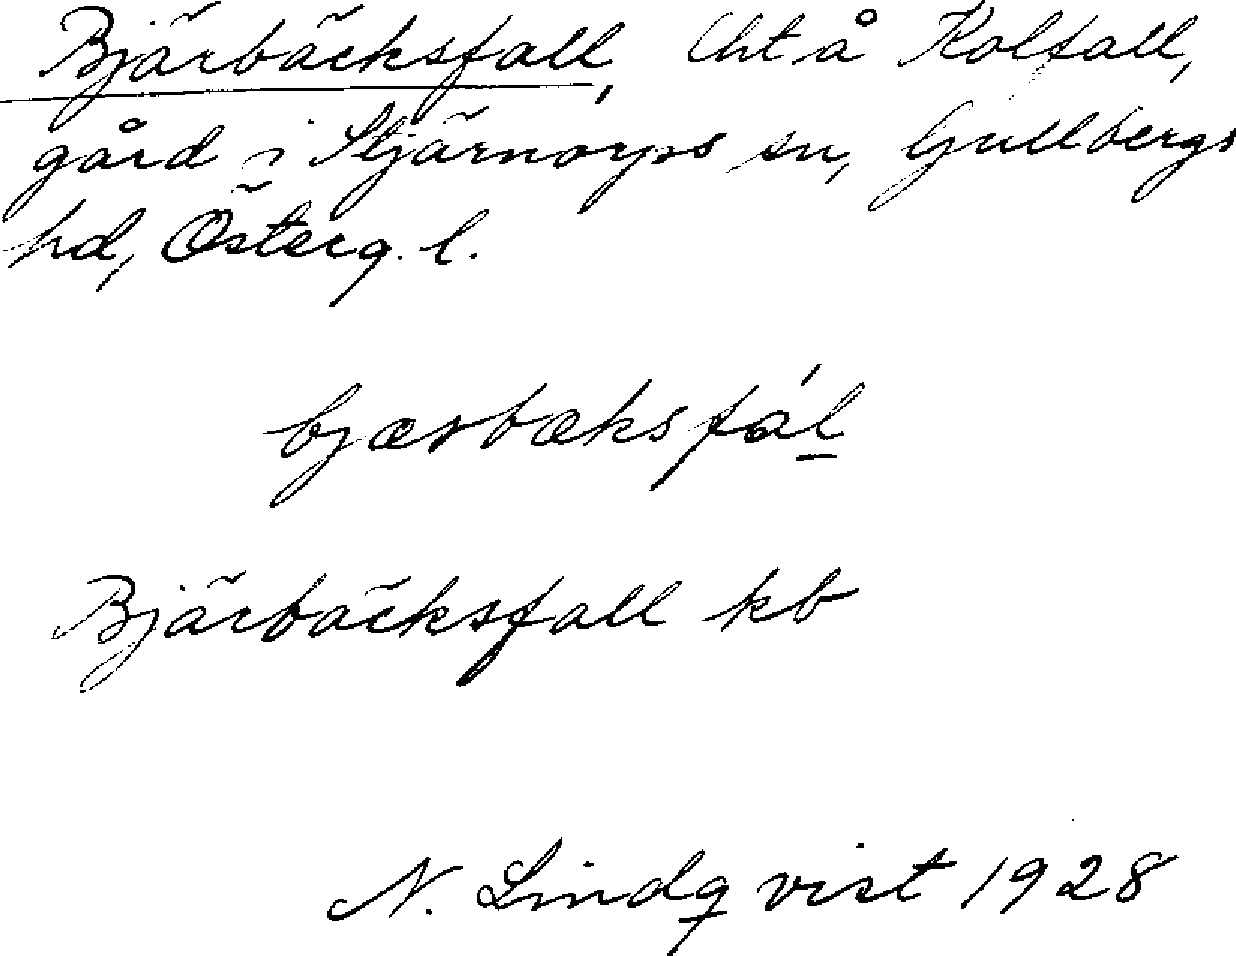 Bjärbäcksfall, Cht å Kolfall,
gård i Stjärnorps sn, Gullbergs
hd, Österg. l.
bjærbæksfál
Bjärbäcksfall kb
N. Lindqvist 1928